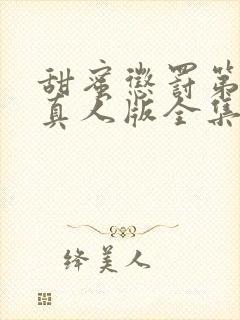 甜蜜惩罚第
真人版全集
绛美人